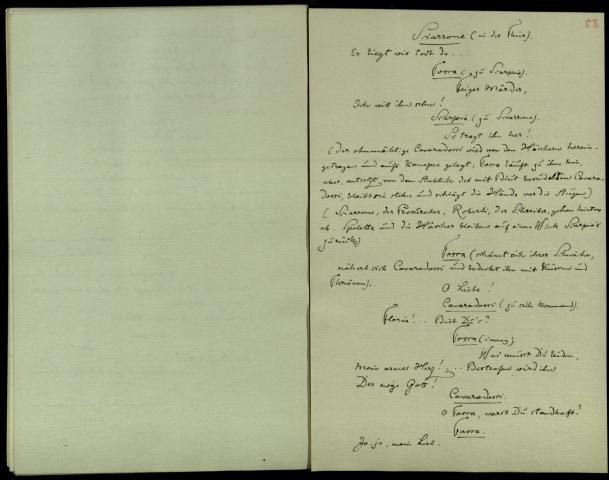 53
Sciarrone (in der Thür).
Er liegt wie todt da...
Tosca (zu Scarpia).
Feiger Mörder,
Ich will ihn sehn!
Scarpia (zu Sciarrone).
So tragt ihn her!
(Der ohnmächtige Cavaradossi wird von den Häschern herein-
getragen und aufs Kanapee gelegt; Tosca läuft zu ihm hin,
aber, entsetzt von dem Anblicke des mit Blut besudelten Cavara-
dossi, bleibt sie stehn und schlägt die Hände vor die Augen)
(Sciarrone, der Procurator, Roberti, der Schreiber, gehen hinten
ab. Spoletta und die Häscher bleiben auf einen Wink Scarpia's
zurück)
Tosca (schämt sich ihrer Schwäche,
nähert sich Cavaradossi und bedeckt ihn mit Küssen und
Thränen).
O Liebe!
Cavaradossi (zu sich kommend).
Floria!.. Bist Du's?
Tosca (innig).
Was musst Du leiden,
Mein armes Herz!... Bestrafen wird ihn
Der ew'ge Gott!
Cavaradossi.
O Tosca, warst Du standhaft?
Tosca.
Ja, ja, mein Lieb.